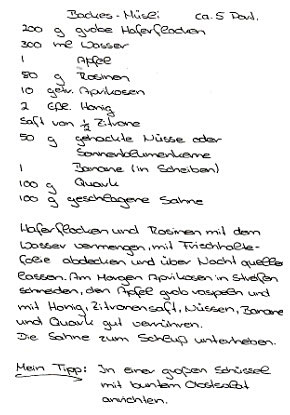 Backes-Müsli ca. 5 Port.
200 g grobe Haferflocken
300 ml Wasser
1 Apfel
50 g Rosinen
10 getr. Aprikosen
2 Eßl. Honig
Saft von ½ Zitrone
50 g gehackte Nüsse oder
Sonnenblumenkerne
1 Banane (in Scheiben)
100 g Quark
100 g geschlagene Sahne
Haferflocken und Rosinen mit dem
Wasser vermengen, mit Frischhalte-
folie abdecken und über Nacht quellen
lassen. Am Morgen Aprikosen in Streifen
schneiden, den Apfel grob raspeln und
mit Honig, Zitronensaft, Nüssen, Banane
und Quark gut verrühren.
Die Sahne zum Schluß unterheben.
Mein Tipp: In einer großen Schüssel
mit buntem Obstsalat
anrichten.